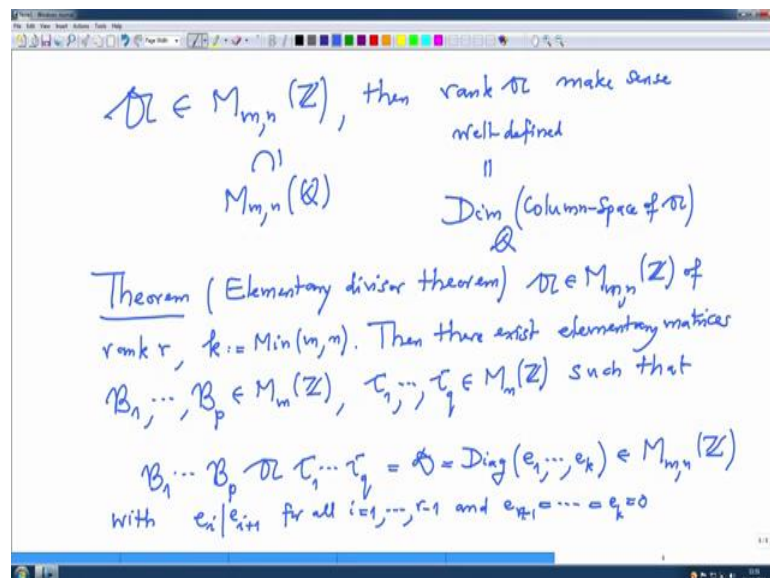 𝔄 ∈ M_{m,n}(ℤ), then rank 𝔄 make sense
well-defined
∩|
||
M_{m,n}(ℚ)
Dim_ℚ (Column-Space of 𝔄)
Theorem (Elementary divisor theorem) 𝔄 ∈ M_{m,n}(ℤ) of
rank r, k := Min(m,n). Then there exist elementary matrices
B_1, ..., B_p ∈ M_m(ℤ), τ_1, ..., τ_q ∈ M_n(ℤ) such that
B_1 ... B_p 𝔄 τ_1 ... τ_q = 𝔇 = Diag(e_1, ..., e_k) ∈ M_{m,n}(ℤ)
with e_i | e_{i+1} for all i=1, ..., r-1 and e_{r+1} = ... = e_k = 0